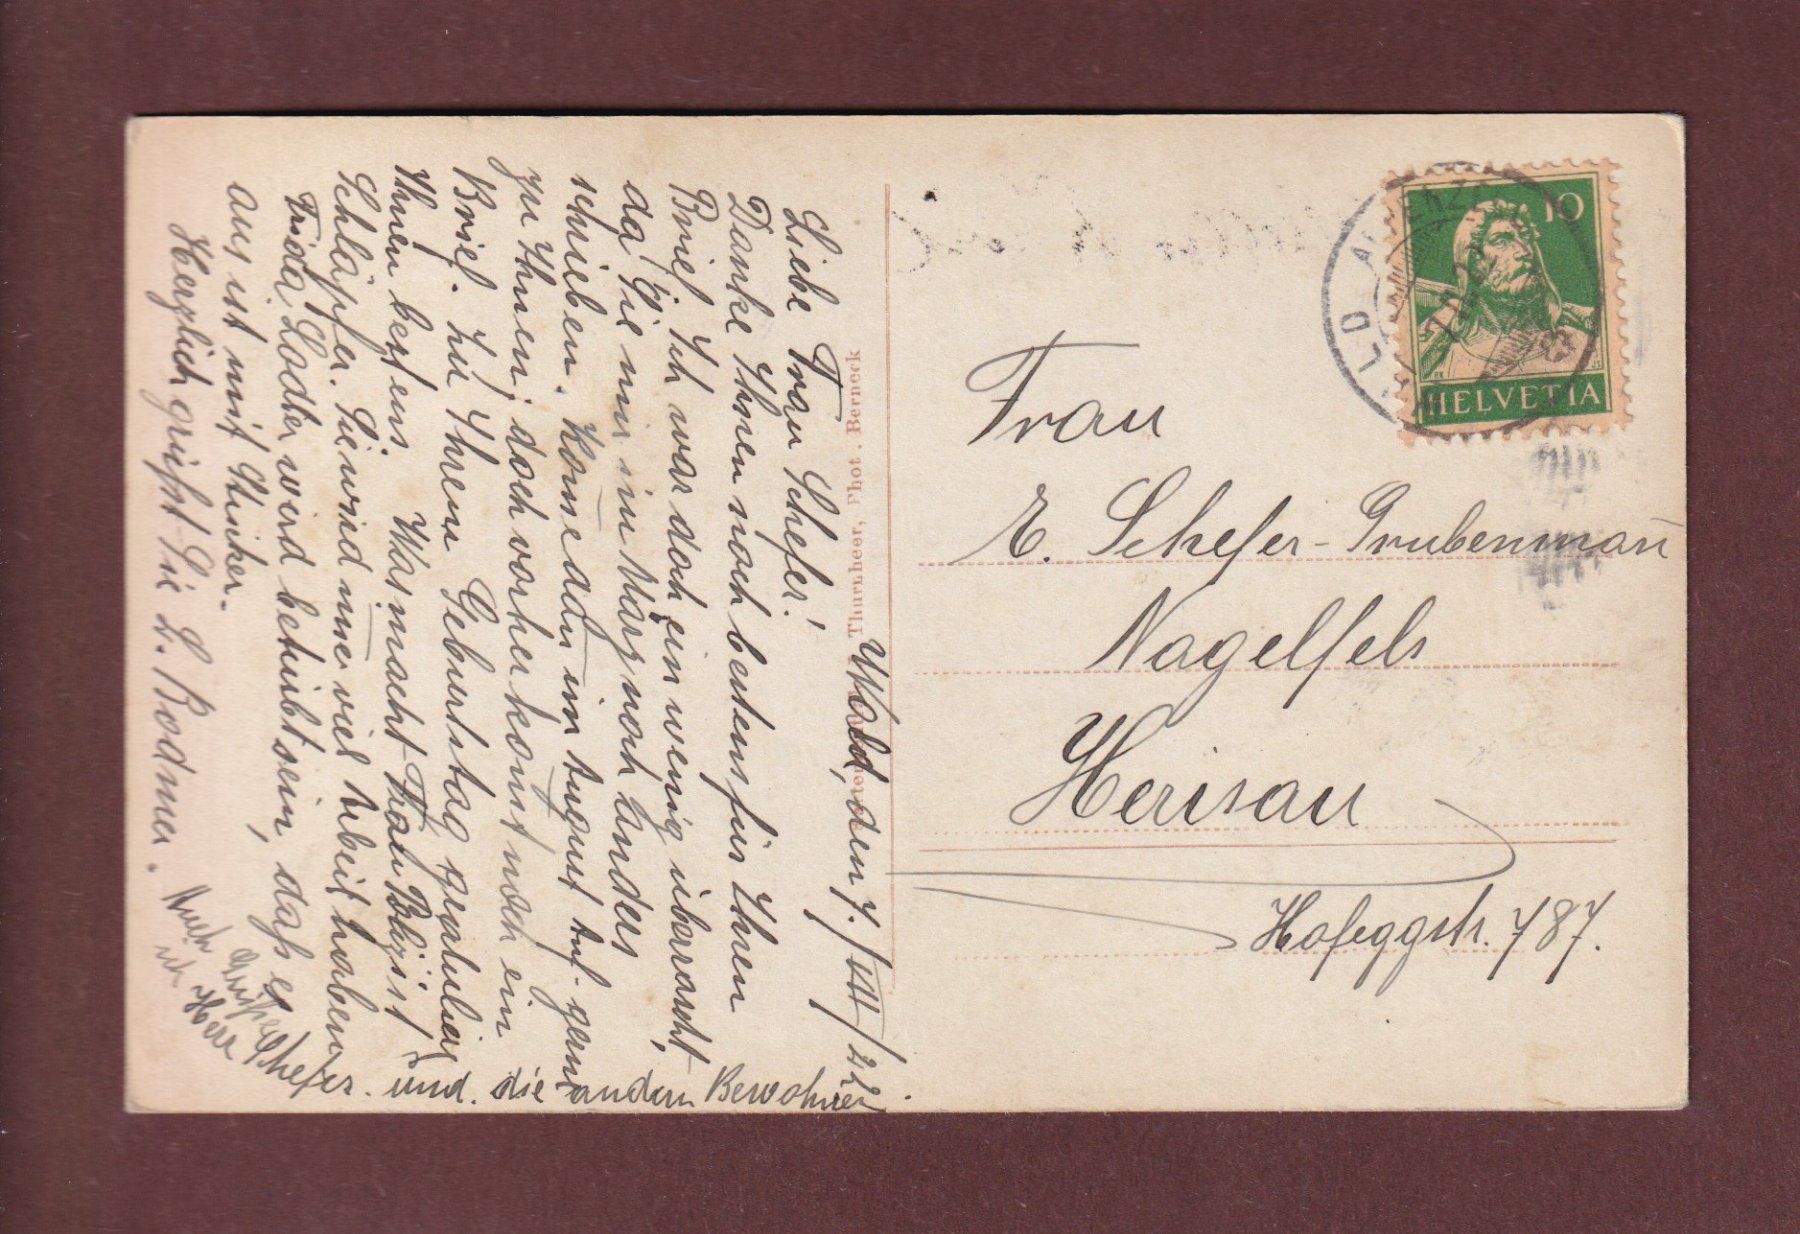 Wald, den 7./VIII/22
Liebe Frau Schefer!
Danke Ihnen noch bestens für Ihren
Brief. Ich war doch ein wenig überrascht,
da Sie mir im März noch anders
schrieben. Kom̄e dan̄ im August auf
zu Ihnen, doch vorher kom̄t noch ein
Brief. Zu Ihrem Geburtstag gratulier
Ihnen bestens. Was macht Frau
Schläpfer. Sie wird im̄e viel Arbeit haben
Frida Lodher wird betrübt sein, daß es
aus ist mit Stinker.
Herzlich grüßt Sie L. Bodmer.
Auch Grüße
an Herr Schefer. und. die andern Bewohner.
Thurnheer, Phot. Berneck
10
HELVETIA
Frau
E. Schefer-Grubenman̄
Nagelfels
Herisau
Hofeggstr. 787.